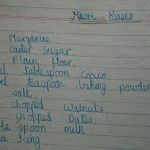 Maori Kisses
Margarine
Caster Sugar.
Plain flour.
tablespoon cocoa.
teaspoon baking powder
salt.
chopped Walnuts.
chopped Dates.
spoon milk